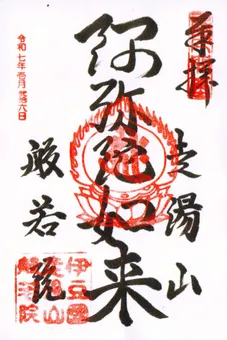 奉拝
走湯山
阿弥陀如来
般若院
令和七年
伊豆國
走湯山
般若院